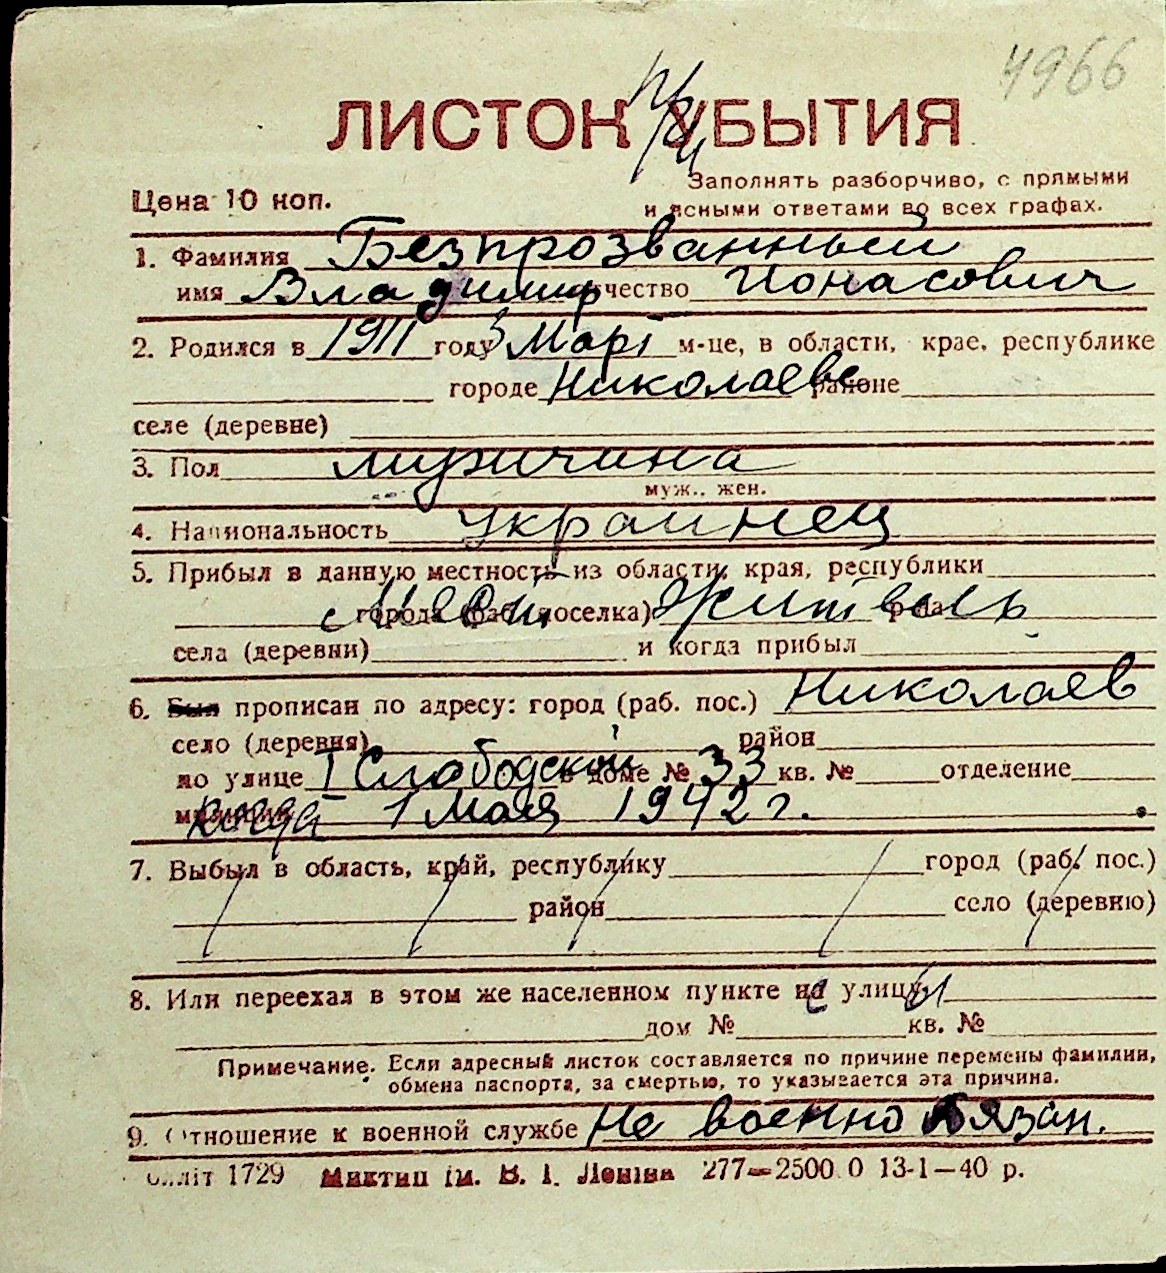 4966
ЛИСТОК УБЫТИЯ
Цена 10 коп.
Заполнять разборчиво, с прямыми
и ясными ответами во всех графах.
1. Фамилия Безпрозванный
имя Владимир отчество Ионасович
2. Родился в 1911 году 3 Март м-це, в области, крае, республике
городе Николаеве районе
селе (деревне)
3. Пол мужчина
муж., жен.
4. Национальность украинец
5. Прибыл в данную местность из области, края, республики
города (раб. поселка) р-на
Мест. житель
села (деревни) и когда прибыл
6. Был прописан по адресу: город (раб. пос.) Николаев
село (деревня) район
по улице I Слободской в доме № 33 кв. № отделение
милиции когда 1 мая 1942 г.
7. Выбыл в область, край, республику город (раб. пос.)
район село (деревню)
8. Или переехал в этом же населенном пункте на улицу
дом № кв. №
Примечание. Если адресный листок составляется по причине перемены фамилии,
обмена паспорта, за смертью, то указывается эта причина.
9. Отношение к военной службе Не военнообязан.
1729 Миктип ім. В. І. Леніна 277—2500 0 13-1—40 р.